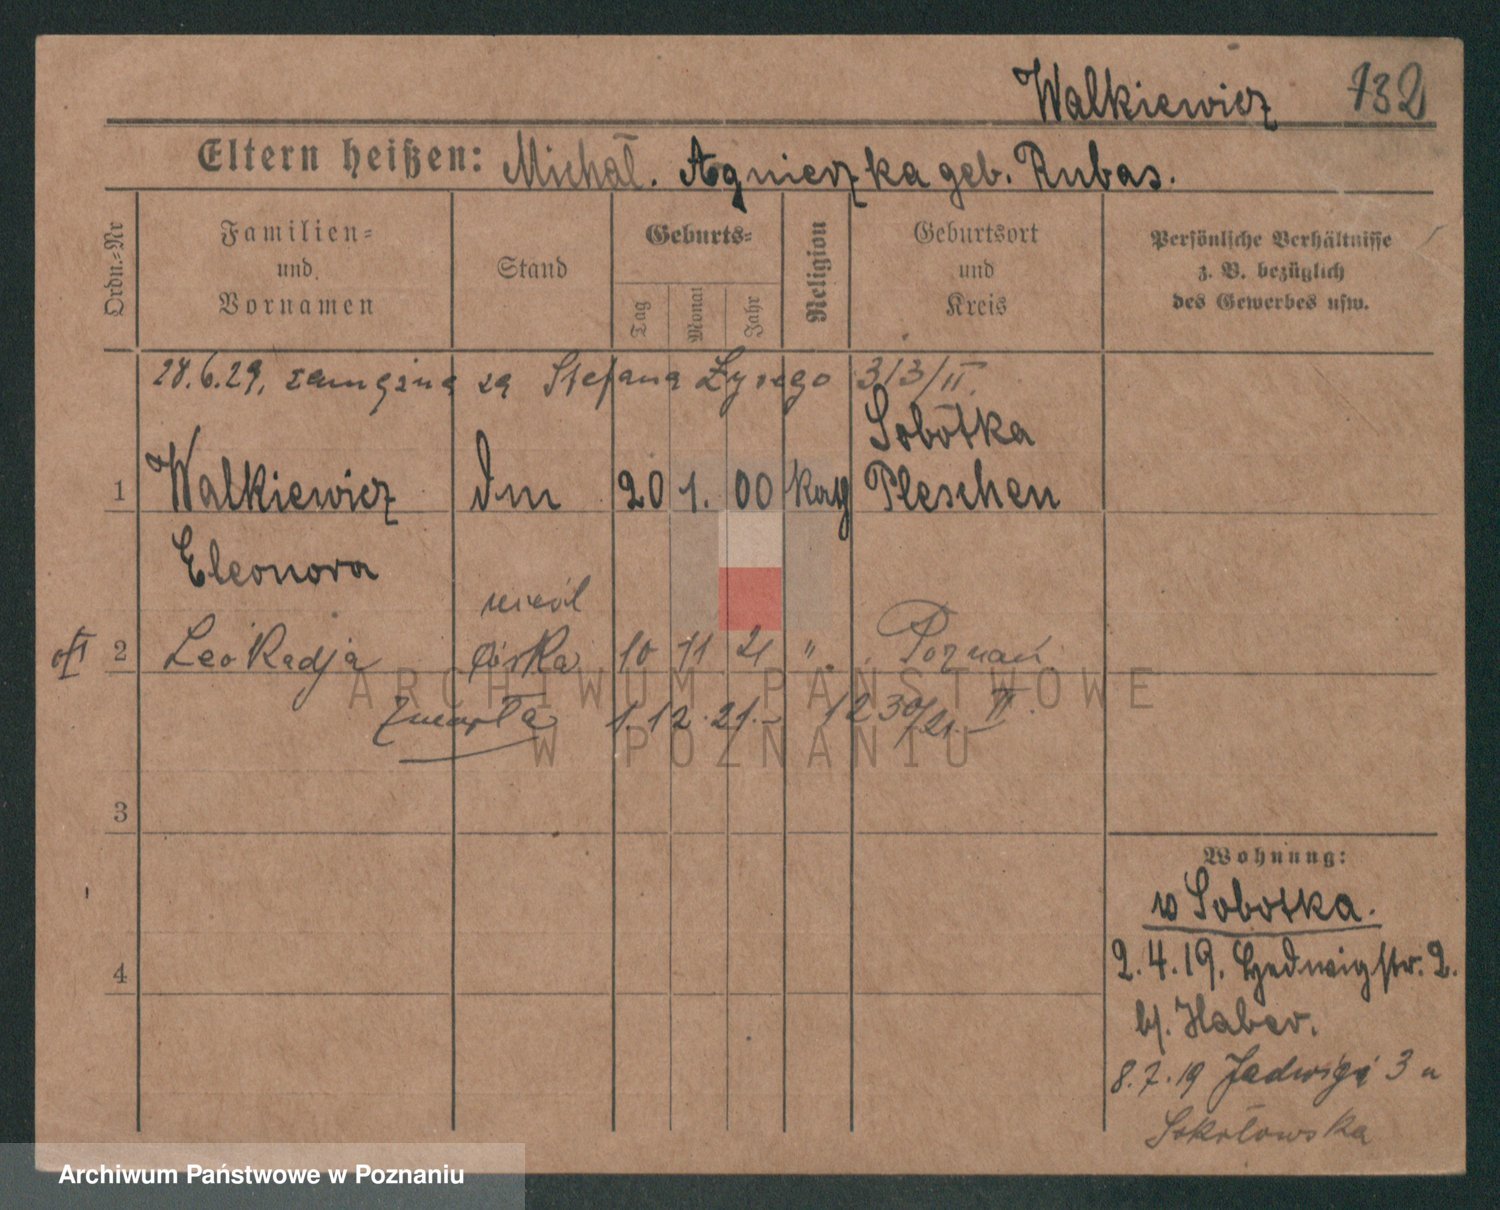 Walkiewicz 132
Eltern heißen: Michał. Agnieszka geb. Rubas.
Ordn.-Nr
Familien-
und
Vornamen
Stand
Geburts-
Tag
Monat
Jahr
Religion
Geburtsort
und
Kreis
Persönliche Verhältnisse
z. B. bezüglich
des Gewerbes usw.
28.6.29, zamężna za Stefana Zysego 313/II.
1 Walkiewicz Dm 20 1. 00 kath Sobótka
Pleschen
Eleonora
2 Leokadja nieśl
córka 10 11 21 ". Poznań.
Zmarła 1.12.21.- 1230/21.- II.
3
4
Wohnung:
w Sobotka.
2.4.19. Hedwigstr. 2.
b/. Haber.
8.7.19 Jadwigi 3 u
Sokołowska
ARCHIWUM PAŃSTWOWE
W POZNANIU
Archiwum Państwowe w Poznaniu